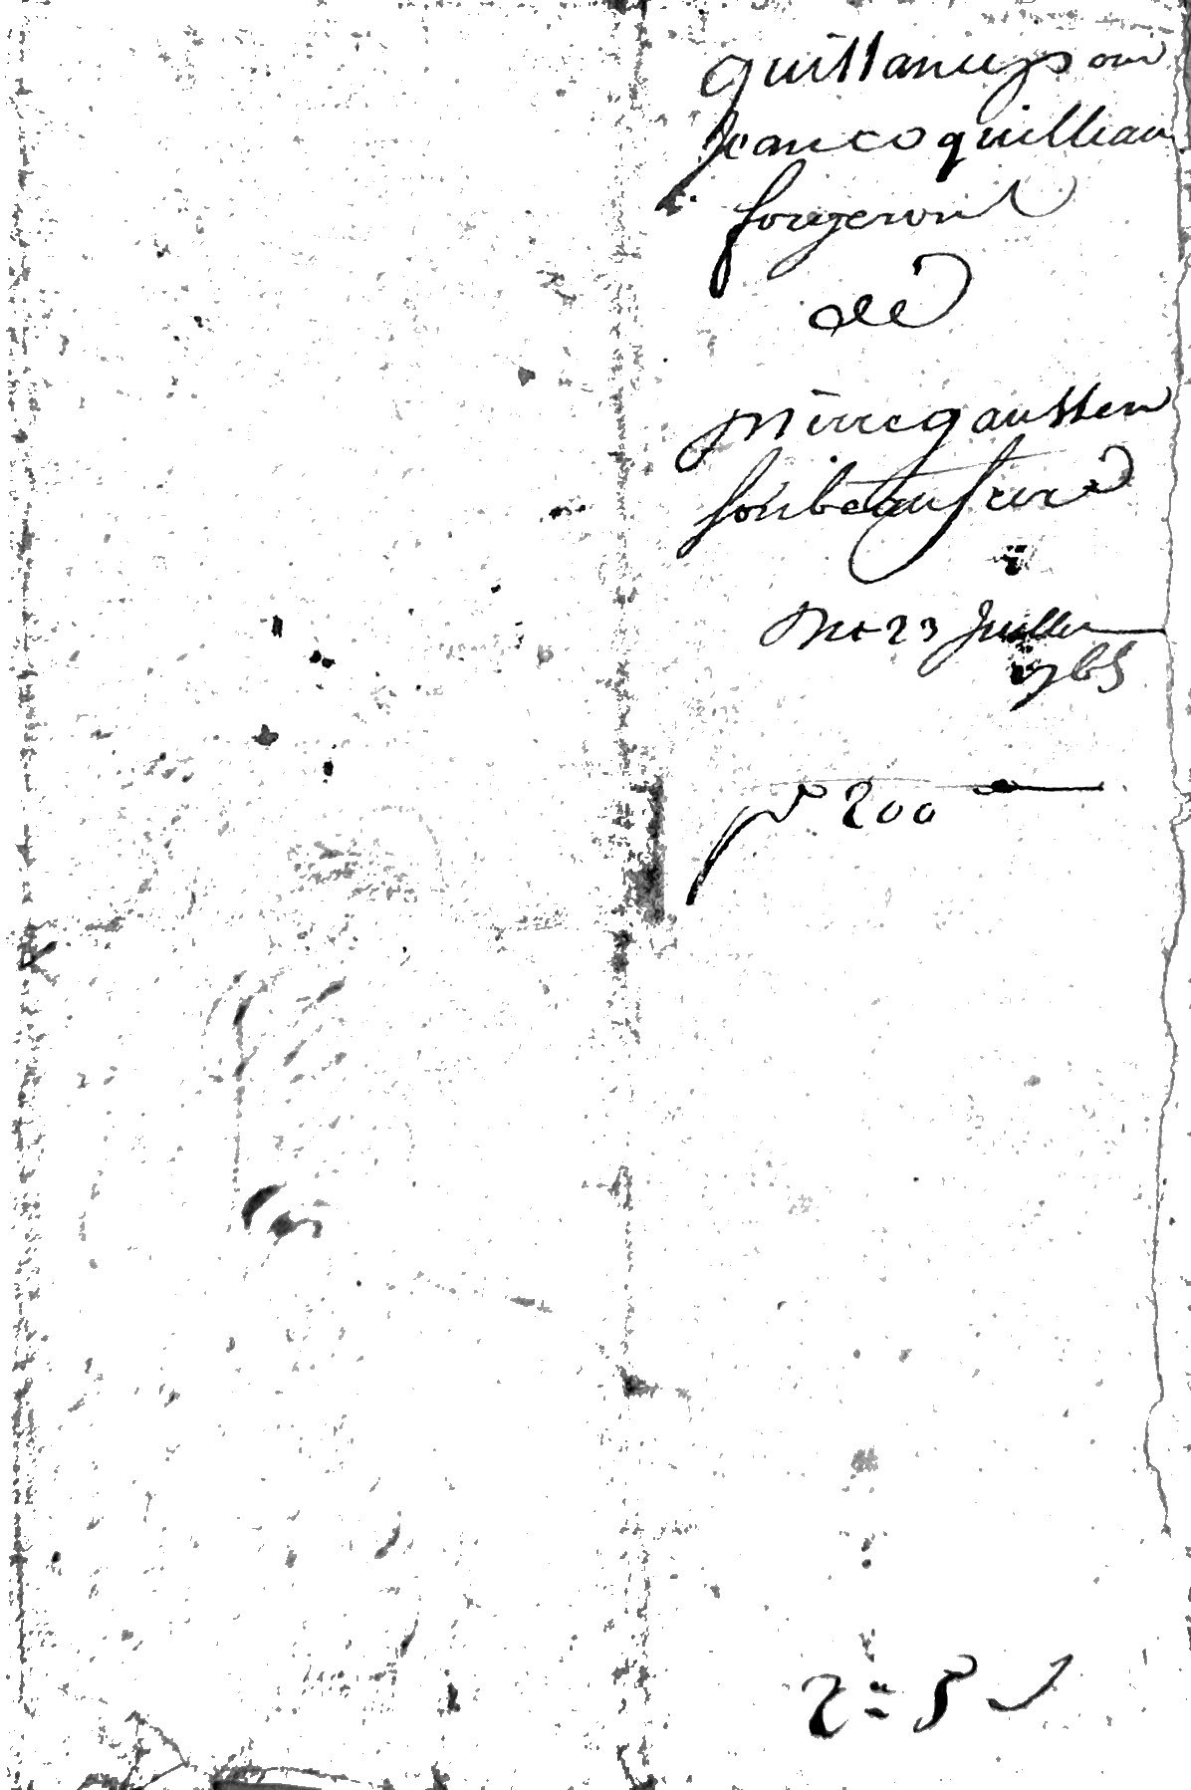 quittance pour
Jean coquilleau
forgeron
de
pierre gaussen
son beau frere
Du 23 Juillet
1765
pr 200
2 = 5